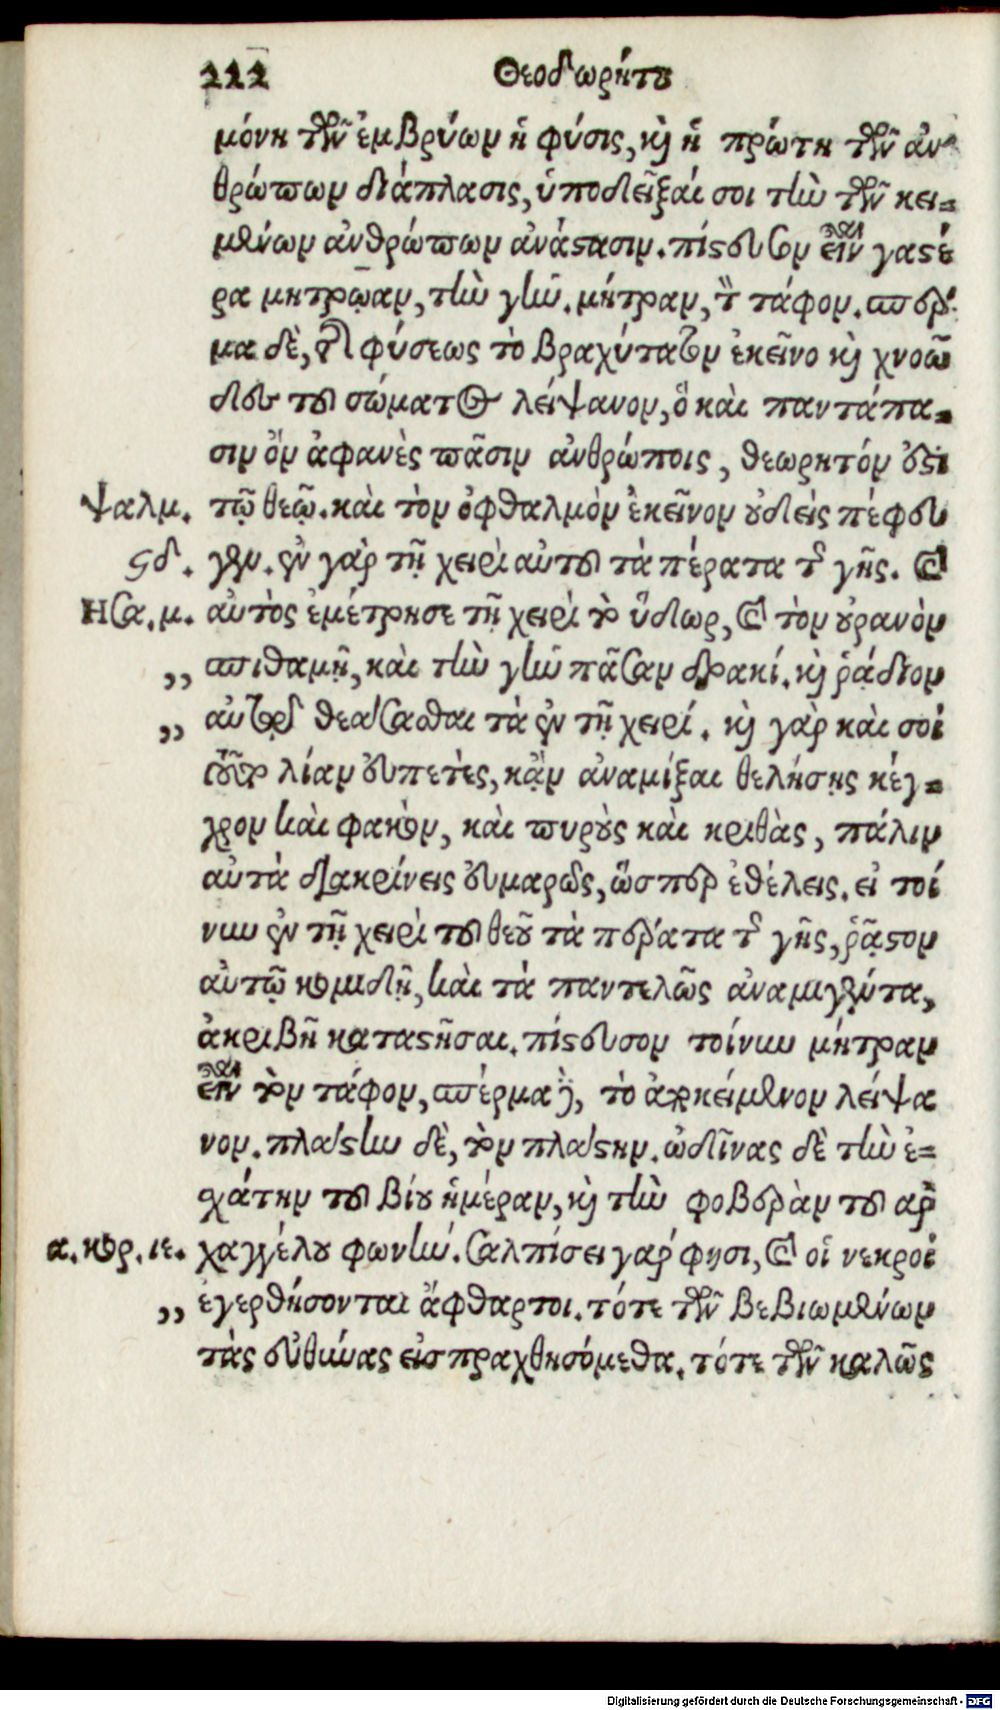 222 Θεοδωρήτου
μόνη τῶν ἐμβρύων ἡ φύσις, καὶ ἡ πρώτη τῶν ἀν-
θρώπων διάπλασις, ὑποδεῖξαί σοι τὴν τῶν κει-
μένων ἀνθρώπων ἀνάστασιν. πίστευσον εἶναι γαστέ
ρα μητρῴαν, τὴν γῆν. μήτραν, τὸν τάφον. σπέρ-
μα δὲ, τῆς φύσεως τὸ βραχύτατον ἐκεῖνο καὶ χνοῶ
δες τοῦ σώματος λείψανον, ὃ καὶ παντάπα-
σιν ὂν ἀφανὲς πᾶσιν ἀνθρώποις, θεωρητόν ἐστι
Ψαλμ. τῷ θεῷ. καὶ τὸν ὀφθαλμὸν ἐκεῖνον οὐδεὶς πέφευ
ϛδ. γεν. ἐν γὰρ τῇ χειρὶ αὐτοῦ τὰ πέρατα τῆς γῆς. καὶ
Ησα. μ. αὐτὸς ἐμέτρησε τῇ χειρὶ τὸ ὕδωρ, καὶ τὸν οὐρανὸν
,, σπιθαμῇ, καὶ τὴν γῆν πᾶσαν δρακί. καὶ ῥᾴδιον
,, αὐτῷ θεάσασθαι τὰ ἐν τῇ χειρί. καὶ γὰρ καὶ σοὶ
τοῦτο λίαν εὐπετὲς, κἂν ἀναμίξαι θελήσῃς κέγ-
χρον καὶ φακὸν, καὶ πυροὺς καὶ κριθὰς, πάλιν
αὐτὰ διακρίνεις εὐμαρῶς, ὥσπερ ἐθέλεις. εἰ τοί
νυν ἐν τῇ χειρὶ τοῦ θεοῦ τὰ πέρατα τῆς γῆς, ῥᾷστον
αὐτῷ κομιδῇ, καὶ τὰ παντελῶς ἀναμιγέντα,
ἀκριβῆ καταστῆσαι. πίστευσον τοίνυν μήτραν
εἶναι τὸν τάφον, σπέρμα δὲ, τὸ ἀποκείμενον λείψα
νον. πλάστην δὲ, τὸν πλάστην. ὠδῖνας δὲ τὴν ἐ-
σχάτην τοῦ βίου ἡμέραν, καὶ τὴν φοβερὰν τοῦ ἀρ
α. κορ. ιε. χαγγέλου φωνήν. Σαλπίσει γάρ φησι, καὶ οἱ νεκροὶ
,, ἐγερθήσονται ἄφθαρτοι. τότε τῶν βεβιωμένων
τὰς εὐθύνας εἰσπραχθησόμεθα. τότε τῶν καλῶς
Digitalisierung gefördert durch die Deutsche Forschungsgemeinschaft - DFG